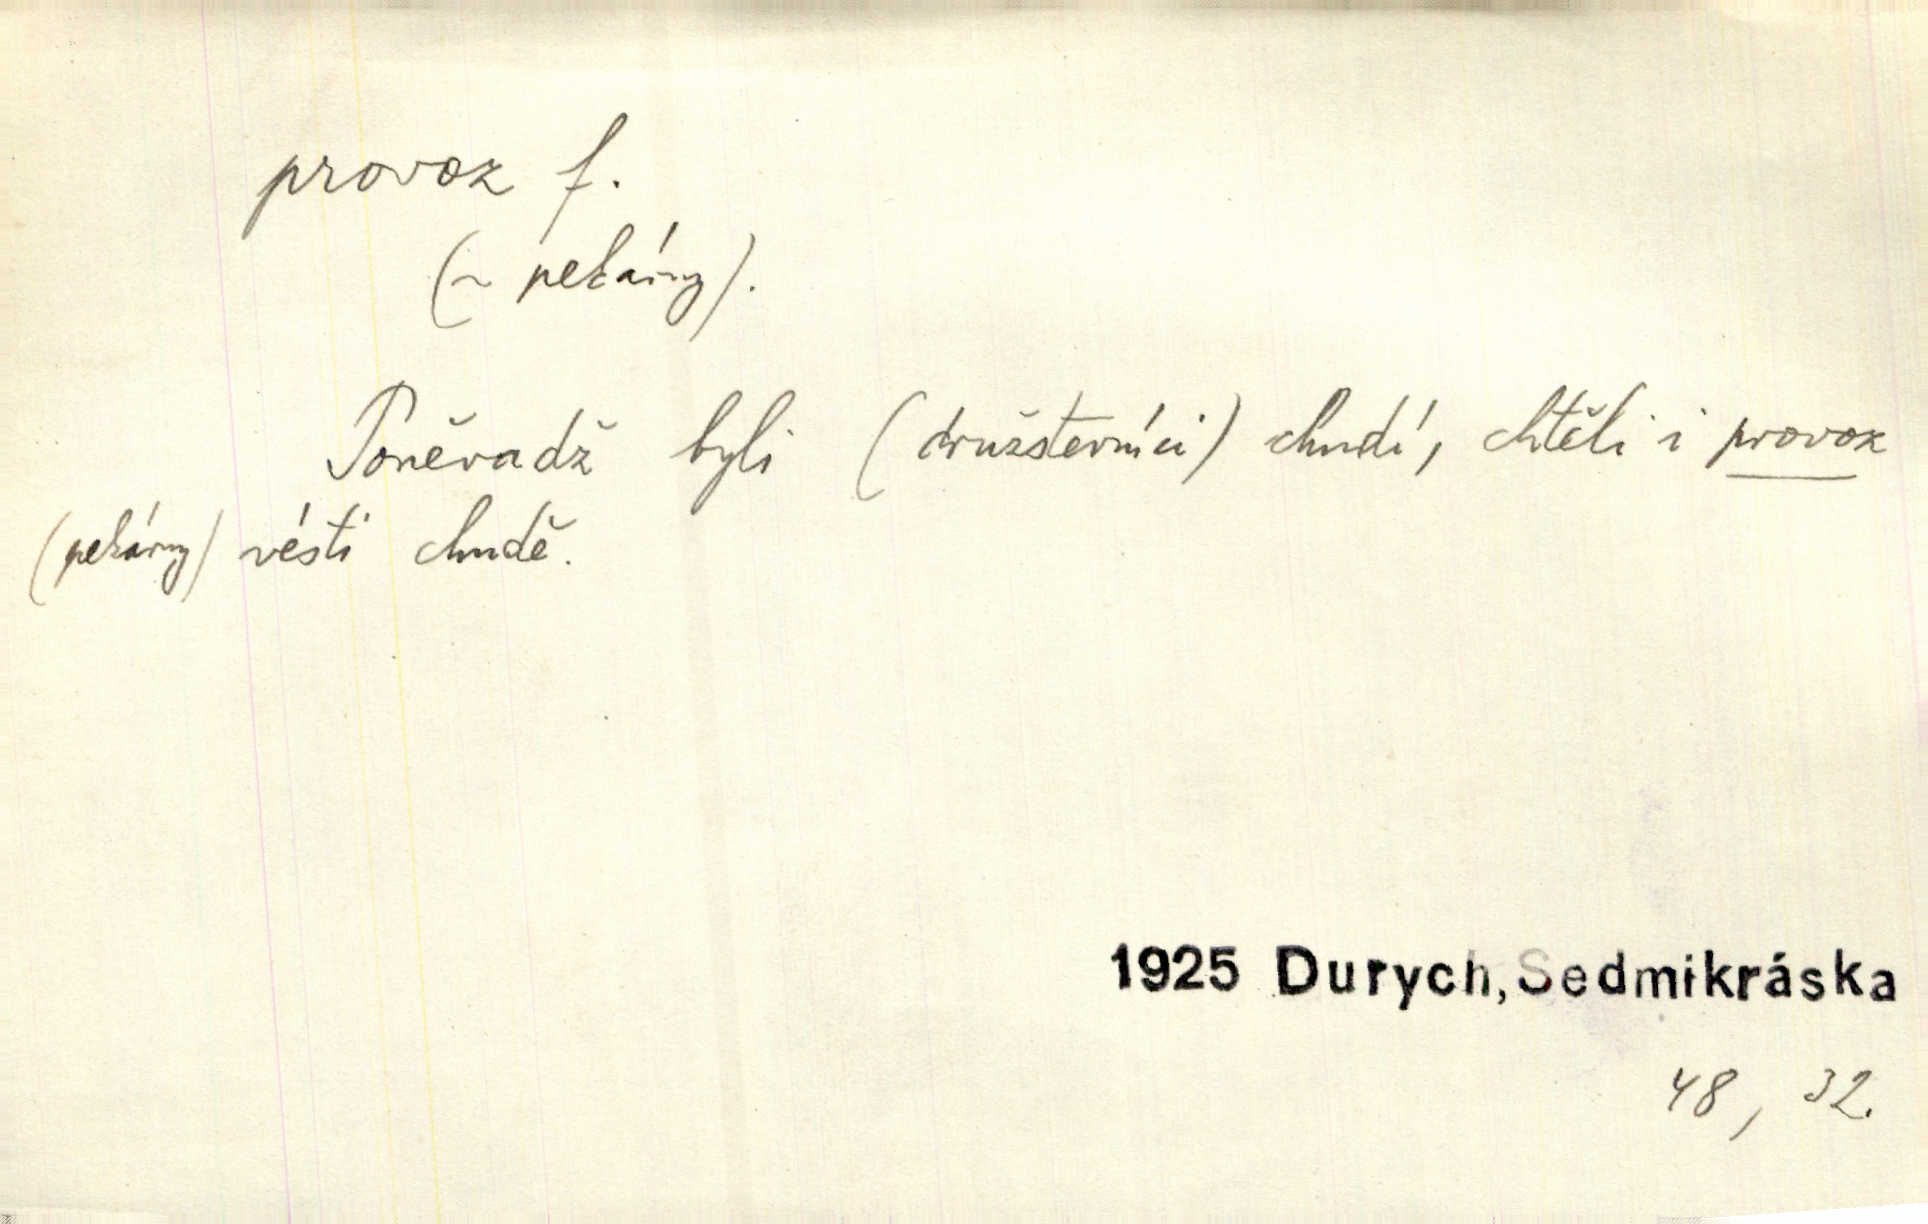 provoz f.
(~ pekárny).
Poněvadž byli (družstevníci) chudí, chtěli i provoz
(pekárny) vésti chudě.
1925 Durych, Sedmikráska
48, 32.